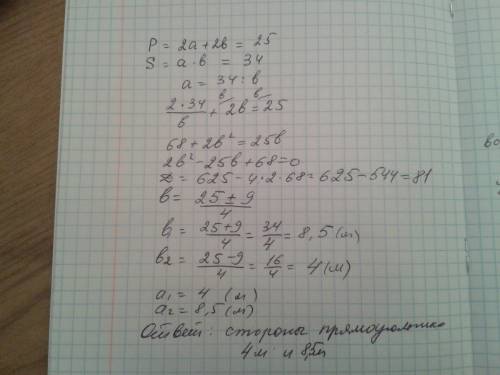 P = 2a + 2b = 25
S = a · b = 34
a = 34 : b
2·34/b + 2b = 25
b b
68 + 2b² = 25b
2b² - 25b + 68 = 0
D = 625 - 4·2·68 = 625 - 544 = 81
b = 25 ± 9 / 4
b₁ = 25+9 / 4 = 34/4 = 8,5 (м)
b₂ = 25-9 / 4 = 16/4 = 4 (м)
a₁ = 4 (м)
a₂ = 8,5 (м)
Ответ: стороны прямоугольника
4м и 8,5м
во